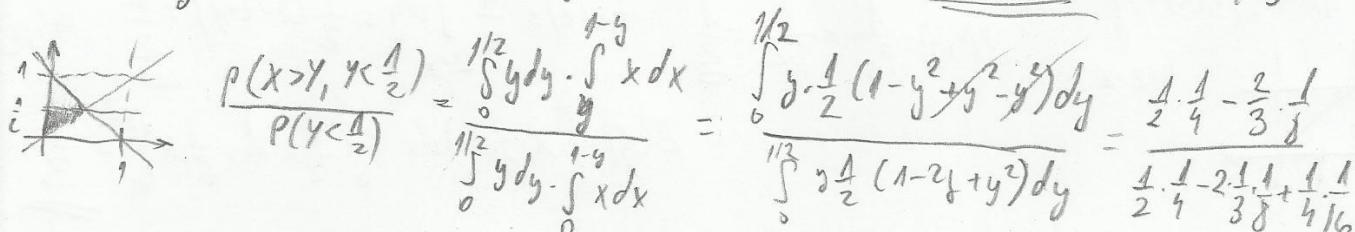 1 1/2 1
P(X>Y, Y<1/2) / P(Y<1/2) = ∫_0^{1/2} y dy · ∫_y^{1-y} x dx / ∫_0^{1/2} y dy · ∫_0^{1-y} x dx = ∫_0^{1/2} y · 1/2 (1-y²+y²-y²) dy / ∫_0^{1/2} y 1/2 (1-2y+y²) dy = 1/2 · 1/4 - 2/3 · 1/8 / 1/2 · 1/4 - 2 · 1/3 · 1/8 + 1/4 · 1/16